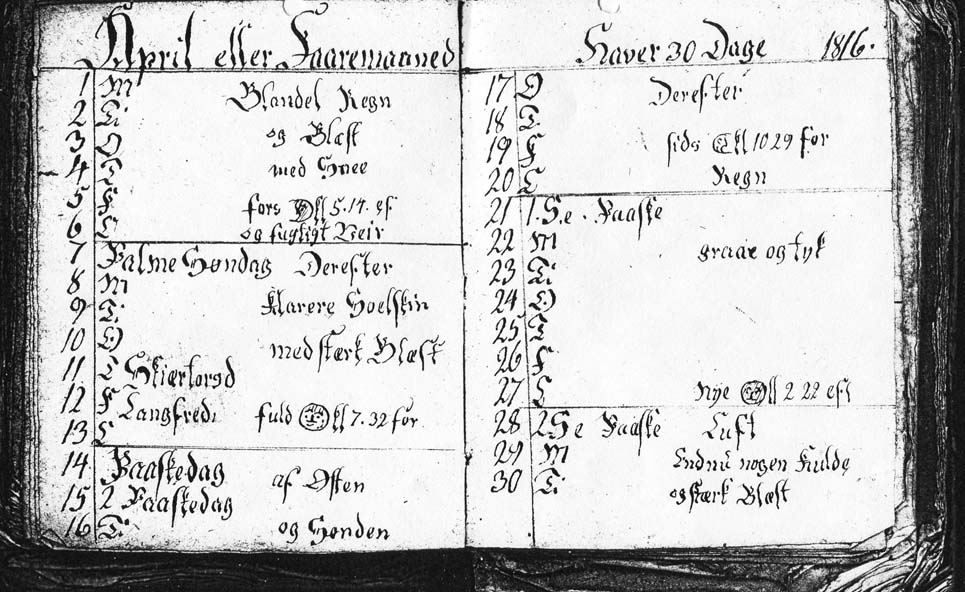 April eller Faaremaaned
1 M Blandel Regn
2 Ti
3 O og Blæst
4 T med Snee
5 F førs Kl 5.14. ef
6 L og fugtigt Veir
7 Palme Søndag Derefter
8 M
9 Ti Klarere Soelskin
10 O med stærk Blæst
11 T Skiærtorsd
12 F Langfredi fuld Kl 7.32 for
13 L
14 Paaskedag af Østen
15 2 Paaskedag
16 Ti og Sønden
Haver 30 Dage 1816.
17 O Derefter
18 T
19 F sids Kl 10 29 for
20 L Regn
21 1. S. e. Paaske
22 M graae og tyk
23 Ti
24 O
25 T
26 F
27 L Nye Kl 2 22 eft
28 2 S e Paaske Luft
29 M Endnu nogen Kulde
30 Ti og stærk Blæst